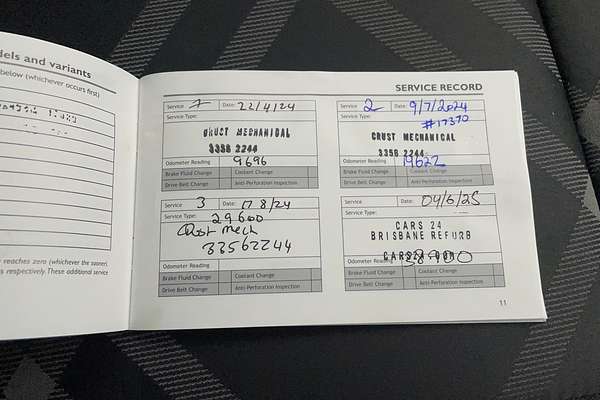 dels and variants
below (whichever occurs first)
reaches zero (whichever the sooner).
respectively. These additional service
SERVICE RECORD
Service 1 Date: 22/4/24
Service Type:
CRUST MECHANICAL
3356 2244
Odometer Reading 9696
Brake Fluid Change Coolant Change
Drive Belt Change Anti-Perforation Inspection
Service 2 Date: 9/7/2024
Service Type: #17370
CRUST MECHANICAL
3356 2244
Odometer Reading 19622
Brake Fluid Change Coolant Change
Drive Belt Change Anti-Perforation Inspection
Service 3 Date: 17 8/24
Service Type: 29600
Crust Mech
33562244
Odometer Reading
Brake Fluid Change Coolant Change
Drive Belt Change Anti-Perforation Inspection
Service Date: 04/6/25
Service Type:
CARS 24
BRISBANE REFURB
Odometer Reading
Brake Fluid Change Coolant Change
Drive Belt Change Anti-Perforation Inspection
11